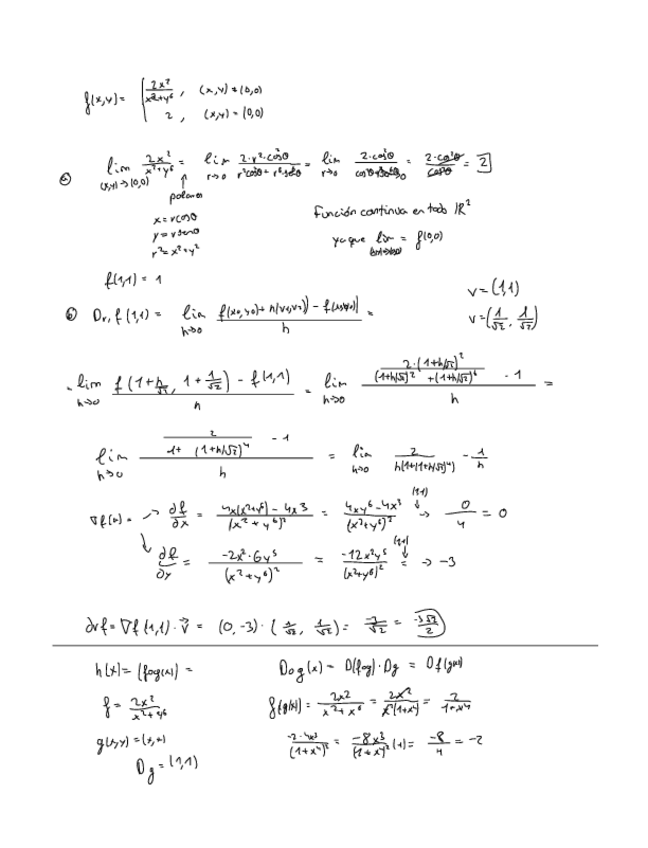 f(x,y) = { 2x² / (x²+y⁶) , (x,y) ≠ (0,0)
2 , (x,y) = (0,0)
a) lim (x,y)→(0,0) 2x² / (x²+y⁶) = lim r→0 2·r²·cos²θ / (r²cos²θ + r⁶sen⁶θ) = lim r→0 2·cos²θ / = 2·cos²θ / cos²θ = 2
polares
x = r cosθ
y = r senθ
r² = x²+y²
Función continua en todo ℝ²
ya que lim (x,y)→(0,0) = f(0,0)
f(1,1) = 1
b) Dv, f(1,1) = lim h→0 (f((x0,y0) + h(v1,v2)) − f(x0,y0)) / h =
v = (1,1)
v = (1/√2, 1/√2)
= lim h→0 (f(1+h/√2, 1+1/√2) − f(1,1)) / h = lim h→0 (2·(1+h/√2)² / ((1+h/√2)² + (1+h/√2)⁶) − 1) / h =
lim h→0 (2 / (1+ (1+h/√2)⁴) − 1) / h = lim h→0 2 / (h(1+(1+h/√2)⁴)) − 1/h
∂f/∂x = (4x(x²+y⁶) − 4x3) / (x²+y⁶)² = (4xy⁶−4x³) / (x²+y⁶)² (1,1) → 0/4 = 0
∂f/∂y = −2x²·6y⁵ / (x²+y⁶)² = −12x²y⁵ / (x²+y⁶)² (1,1) = → −3
∂vf = ∇f(1,1)·v⃗ = (0,−3)·(1/√2, 1/√2) = /√2 = −3√2/2
h(x) = (fog(x)) =
Dog(x) = D(fog)·Dg = Df(g(x))
f = 2x² / (x²+y⁶)
f(g(x)) = 2x2 / (x²+x⁶) = 2x² / x²(1+x⁴) = 2 / (1+x⁴)
g(x,y) = (x,x)
−2·4x3 / (1+x⁴)² = −8x³ / (1+x⁴)² (1) = −8/4 = −2
Dg = (1,1)